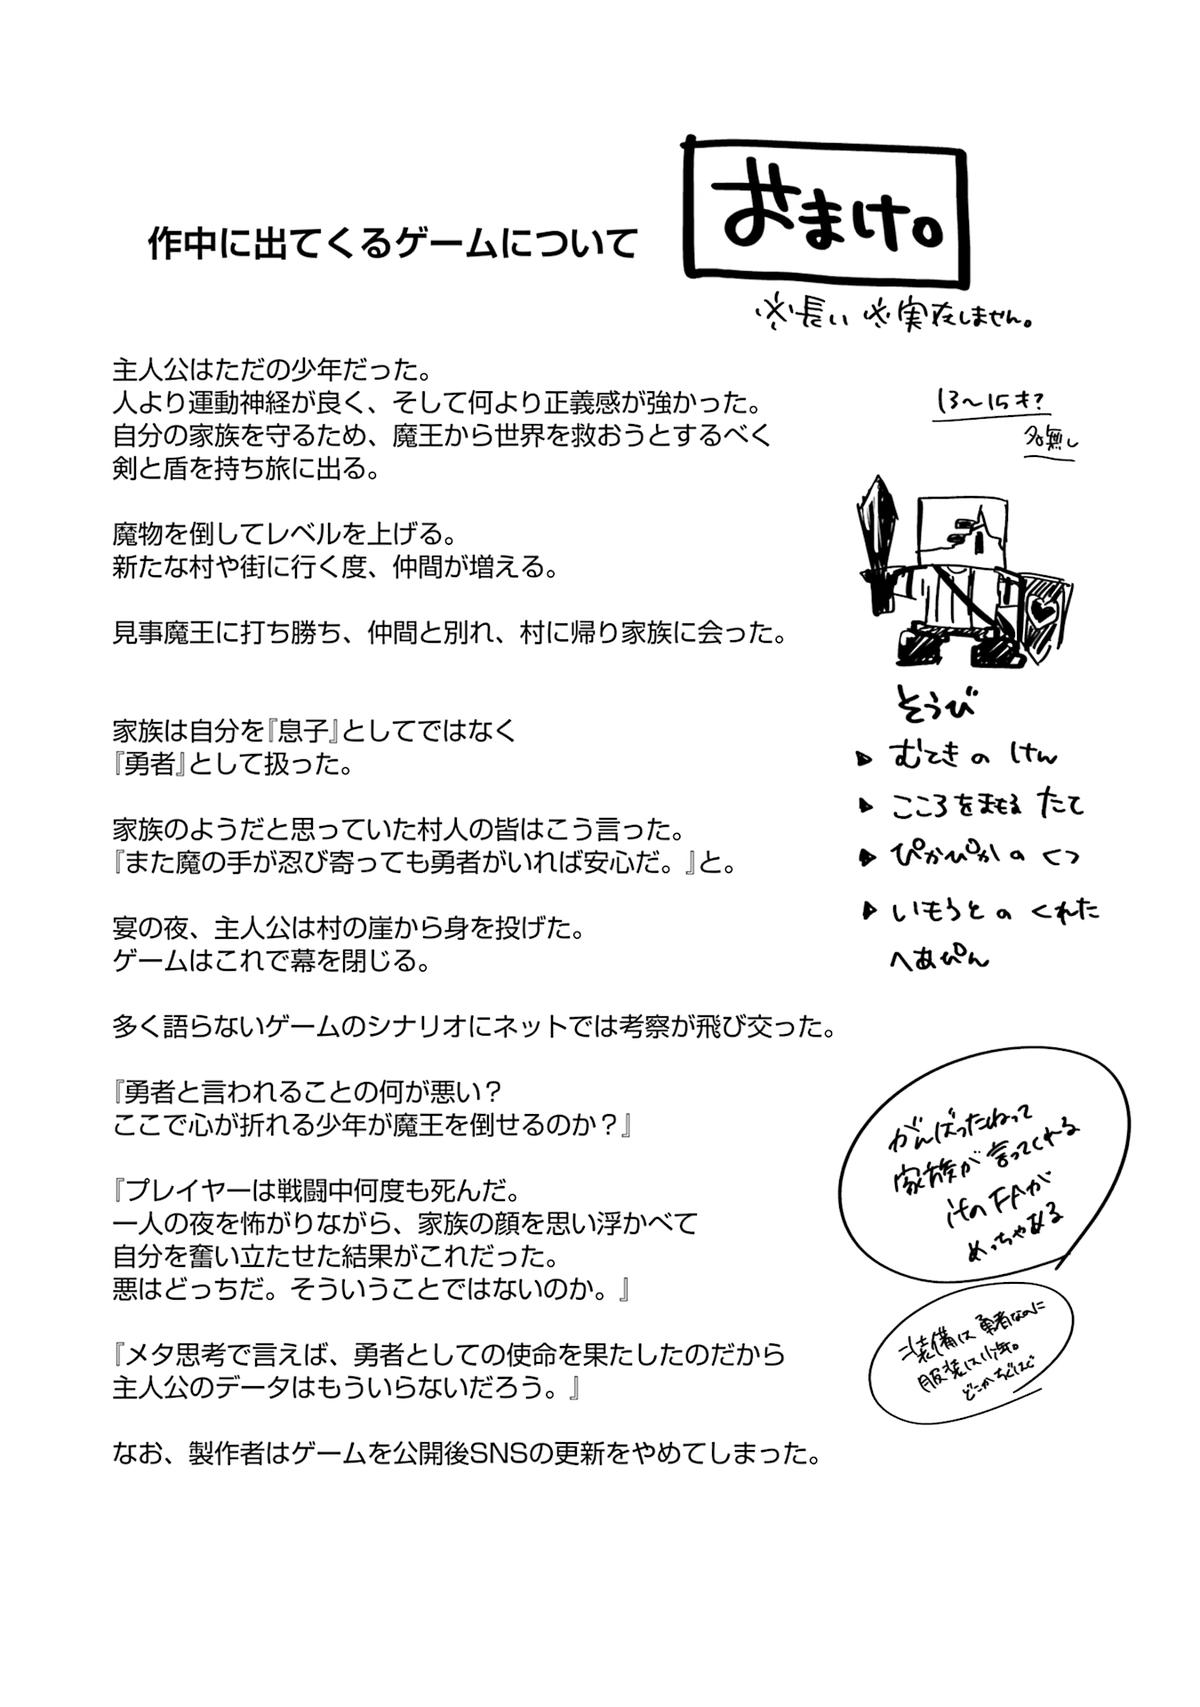 おまけ。
作中に出てくるゲームについて
※長い ※実在しません。
主人公はただの少年だった。
人より運動神経が良く、そして何より正義感が強かった。
自分の家族を守るため、魔王から世界を救おうとするべく
剣と盾を持ち旅に出る。
魔物を倒してレベルを上げる。
新たな村や街に行く度、仲間が増える。
見事魔王に打ち勝ち、仲間と別れ、村に帰り家族に会った。
家族は自分を『息子』としてではなく
『勇者』として扱った。
家族のようだと思っていた村人の皆はこう言った。
『また魔の手が忍び寄っても勇者がいれば安心だ。』と。
宴の夜、主人公は村の崖から身を投げた。
ゲームはこれで幕を閉じる。
多く語らないゲームのシナリオにネットでは考察が飛び交った。
『勇者と言われることの何が悪い？
ここで心が折れる少年が魔王を倒せるのか？』
『プレイヤーは戦闘中何度も死んだ。
一人の夜を怖がりながら、家族の顔を思い浮かべて
自分を奮い立たせた結果がこれだった。
悪はどっちだ。そういうことではないのか。』
『メタ思考で言えば、勇者としての使命を果たしたのだから
主人公のデータはもういらないだろう。』
なお、製作者はゲームを公開後SNSの更新をやめてしまった。
13〜15才?
名無し
そうび
▶ むてきの けん
▶ こころをまもる たて
▶ ぴかぴかの くつ
▶ いもうとの くれた
へあぴん
がんばったねって
家族が言ってくれる
ifのFAが
めっちゃある
装備は勇者なのに
服装は少年。
どこかちぐはぐ